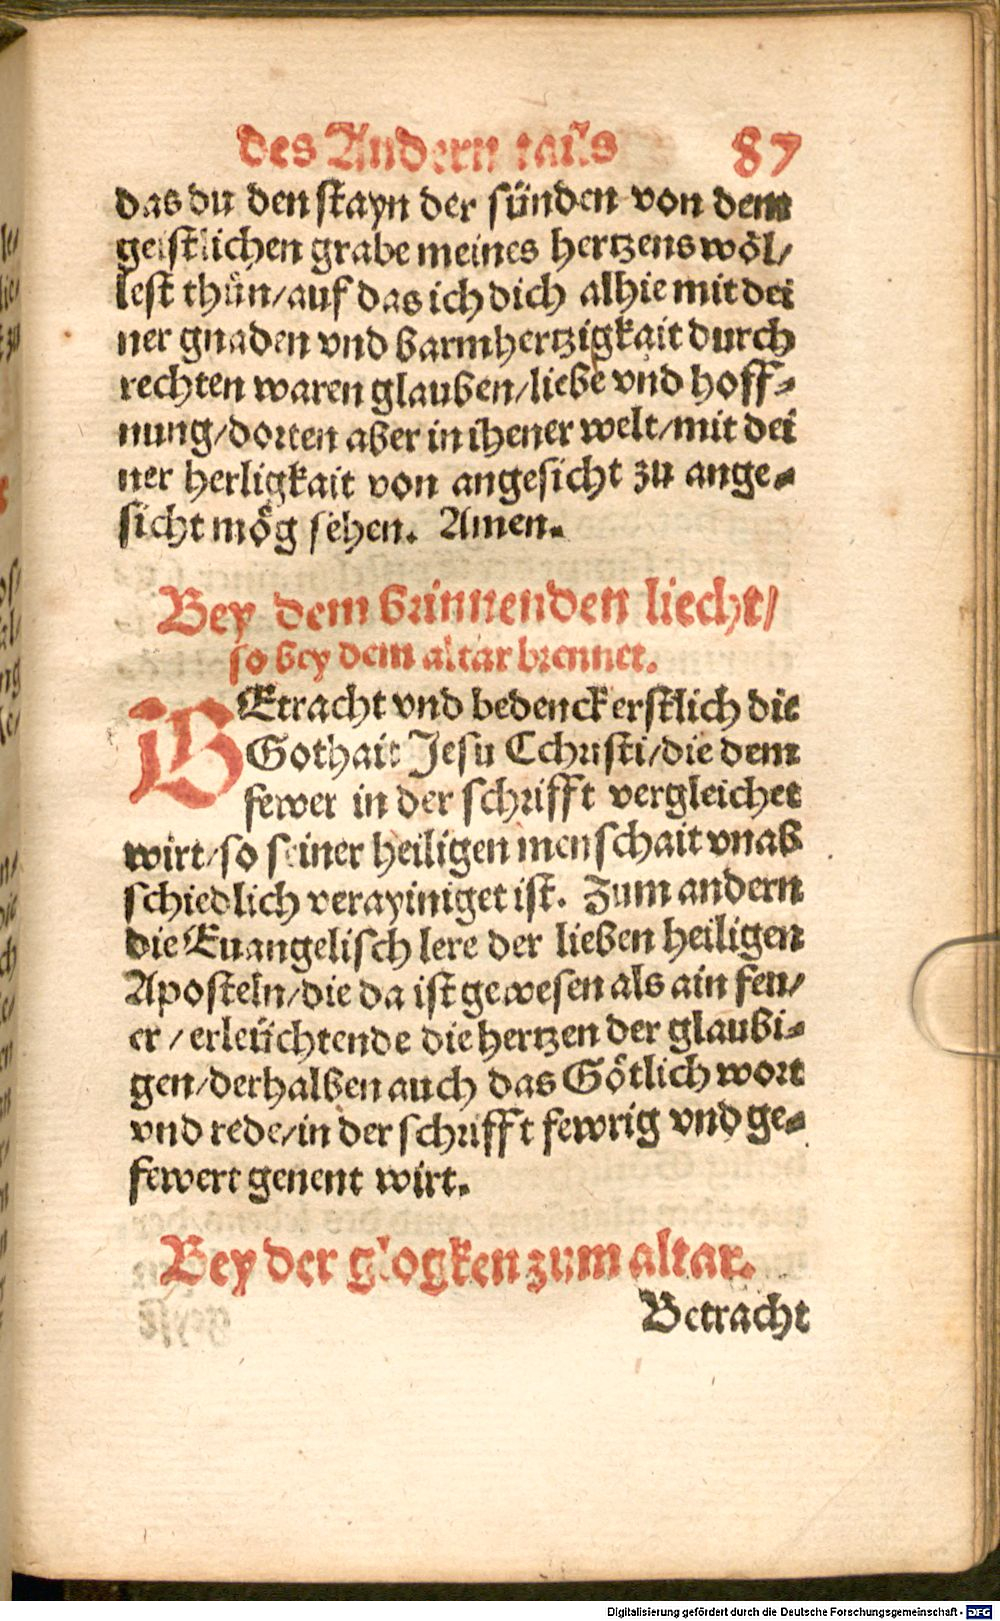 des Andern tails 87
das du den stayn der sünden von dem
geistlichen grabe meines hertzens wöl/
lest thün/auf das ich dich alhie mit dei
ner gnaden vnd barmhertzigkait durch
rechten waren glauben/liebe vnd hoff-
nung/dorten aber in ihener welt/mit dei
ner herligkait von angesicht zu ange-
sicht mög sehen. Amen.
Bey dem brinnenden liecht/
so bey dem altar brennet.
BEtracht vnd bedenck erstlich die
Gothait Jesu Cchristi/die dem
fewer in der schrifft vergleichet
wirt/so seiner heiligen menschait vnab
schiedlich verayiniget ist. Zum andern
die Euangelisch lere der lieben heiligen
Aposteln/die da ist gewesen als ain fen/
er/erleüchtende die hertzen der glaubi-
gen/derhalben auch das Götlich wort
vnd rede/in der schrifft fewrig vnd ge-
fewert genent wirt.
Bey der glogken zum altar.
Betracht
Digitalisierung gefördert durch die Deutsche Forschungsgemeinschaft - DFG